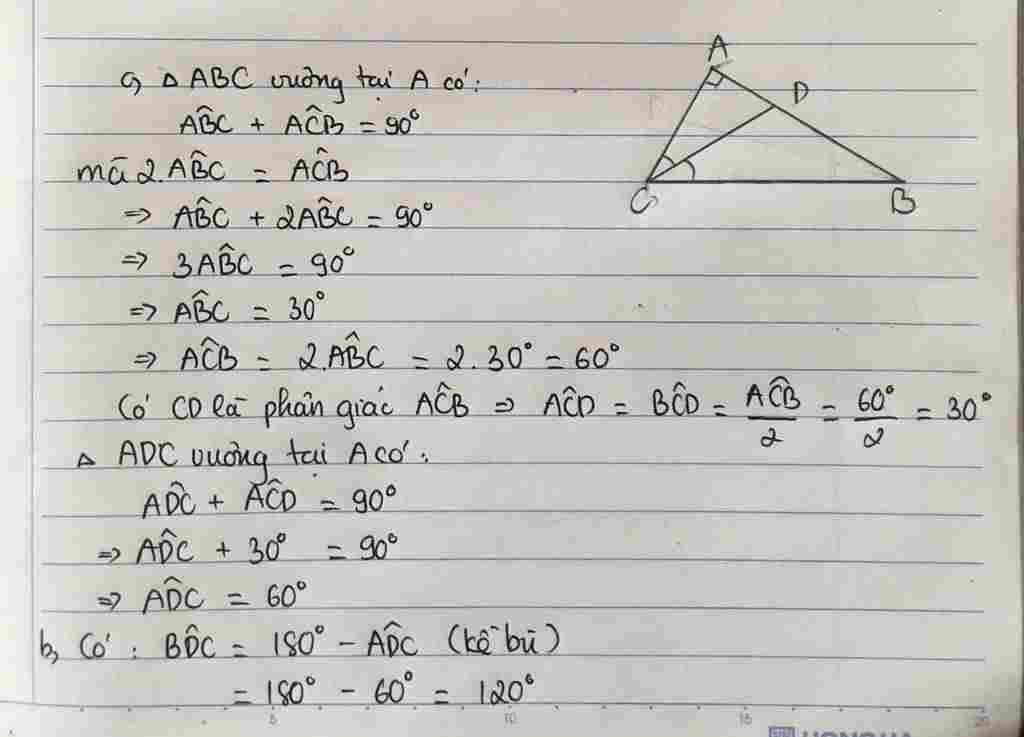 a, △ ABC vuông tại A có:
AB̂C + AĈB = 90°
mà 2.AB̂C = AĈB
=> AB̂C + 2AB̂C = 90°
=> 3AB̂C = 90°
=> AB̂C = 30°
=> AĈB = 2.AB̂C = 2.30° = 60°
Có CD là phân giác AĈB => AĈD = BĈD = AĈB/2 = 60°/2 = 30°
△ ADC vuông tại A có:
AD̂C + AĈD = 90°
=> AD̂C + 30° = 90°
=> AD̂C = 60°
b, Có: BD̂C = 180° - AD̂C (kề bù)
= 180° - 60° = 120°
A
D
C
B
5 10 15 20
HONG HA